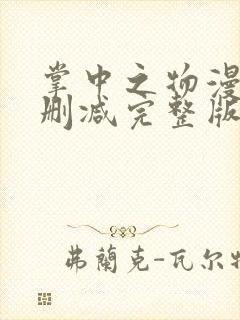 掌中之物漫
删减完整版
弗蘭克-瓦尔特